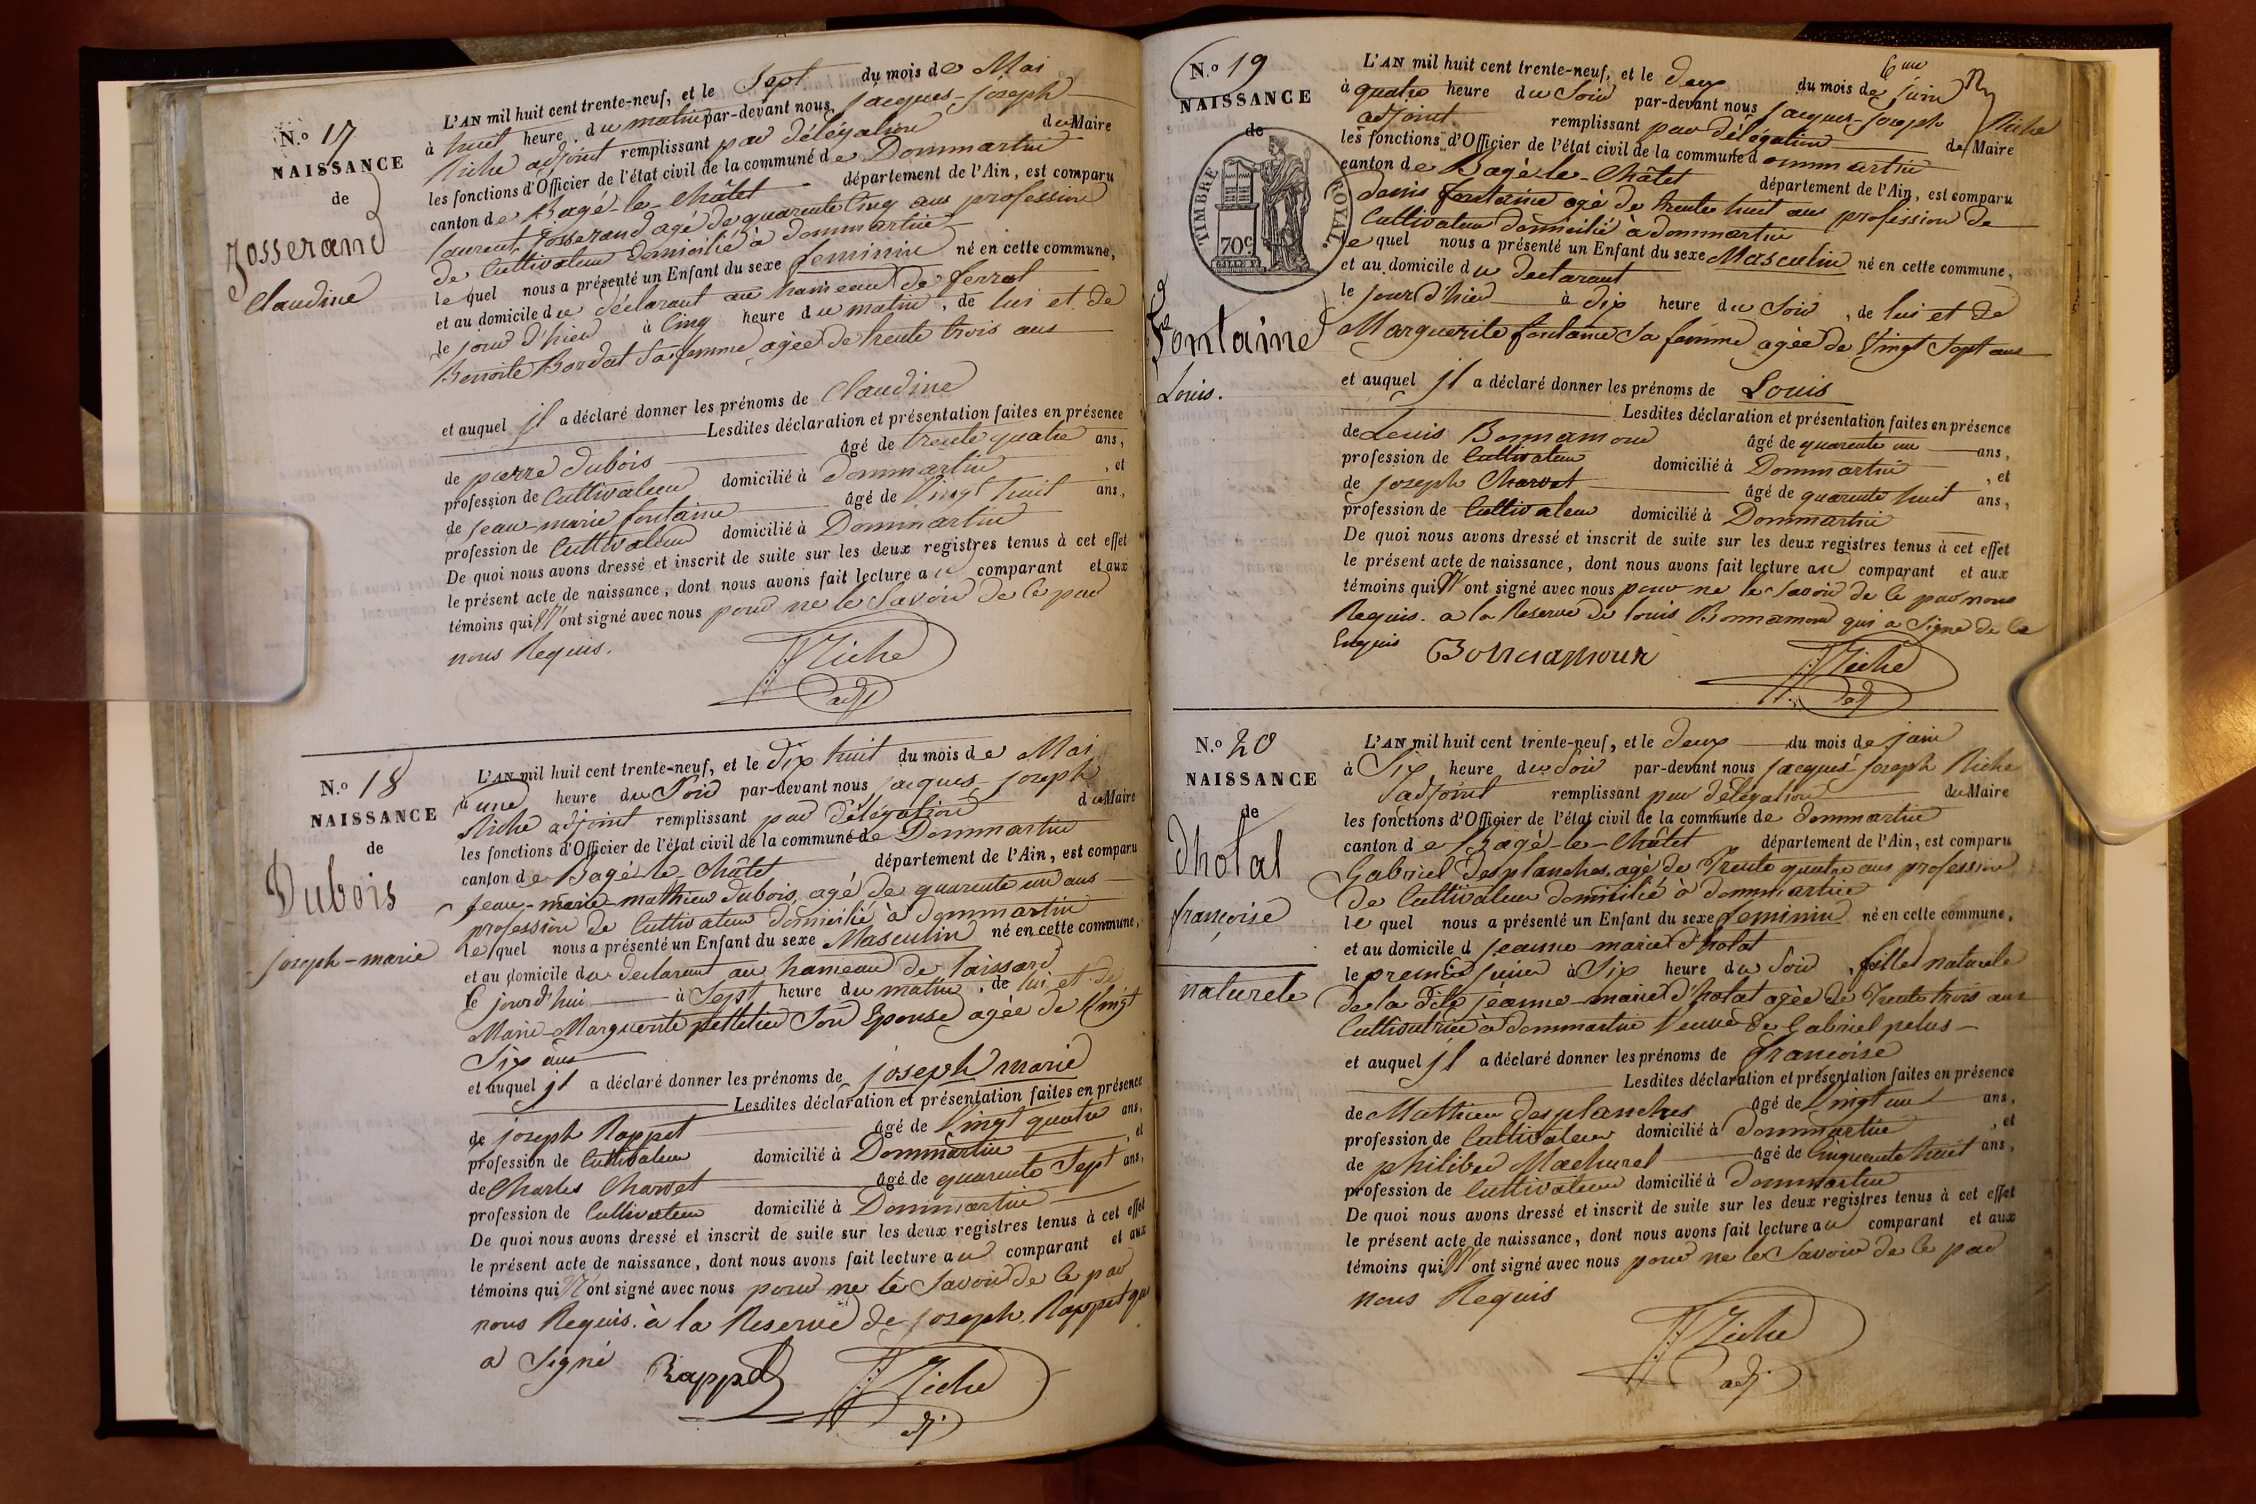 N.o 17
NAISSANCE
de
Josserand
Claudine
L'AN mil huit cent trente-neuf, et le Sept du mois de Mai
à huit heure du matin par-devant nous, jacques-joseph
Riche adjoint remplissant par délégation du Maire
les fonctions d'Officier de l'état civil de la commune de Dommartin
canton de Bagé-le-Châtel département de l'Ain, est comparu
laurent Josserand agé de quarente cinq ans profession
de Cultivateur domicilié à dommartin
le quel nous a présenté un Enfant du sexe feminin né en cette commune,
et au domicile du déclarant au hameau de ferrat
le jour d'hier à Cinq heure du matin, de lui et de
Benoite Bordat Sa femme agée de trente trois ans
et auquel il a déclaré donner les prénoms de Claudine
Lesdites déclaration et présentation faites en présence
de pierre dubois âgé de trente quatre ans,
profession de Cultivateur domicilié à Dommartin, et
de jean-marie fontaine âgé de Vingt huit ans,
profession de Cultivateur domicilié à Dommartin
De quoi nous avons dressé et inscrit de suite sur les deux registres tenus à cet effet
le présent acte de naissance, dont nous avons fait lecture au comparant et aux
témoins qui N'ont signé avec nous pour ne le Savoir de ce par
nous Requis.
Riche
adj
N.o 18
NAISSANCE
de
Dubois
joseph-marie
L'AN mil huit cent trente-neuf, et le dix huit du mois de Mai
à une heure du Soir par-devant nous jacques-joseph
Riche adjoint remplissant par délégation du Maire
les fonctions d'Officier de l'état civil de la commune de Dommartin
canton de Bagé-le-Châtel département de l'Ain, est comparu
jean-marie-mathieu dubois, agé de quarente un ans
profession de Cultivateur domicilié à dommartin
le quel nous a présenté un Enfant du sexe Masculin né en cette commune,
et au domicile du declarant au hameau de laissard
le jourd'hui à Sept heure du matin, de lui et de
Marie-Marguerite pelletier Son Epouse agée de Vingt
Six ans
et auquel il a déclaré donner les prénoms de joseph marie
Lesdites déclaration et présentation faites en présence
de joseph Rappet âgé de Vingt quatre ans,
profession de Cultivateur domicilié à Dommartin, et
de Charles Charvet âgé de quarente Sept ans,
profession de Cultivateur domicilié à Dommartin
De quoi nous avons dressé et inscrit de suite sur les deux registres tenus à cet effet
le présent acte de naissance, dont nous avons fait lecture au comparant et aux
témoins qui N'ont signé avec nous pour ne le Savoir de ce par
nous Requis. à la Reserve de joseph Rappet qui
a Signé
Rappet
Riche
adj.
N.o 19
NAISSANCE
de
TIMBRE ROYAL.
70c
Fontaine
Louis.
6me
L'AN mil huit cent trente-neuf, et le deux du mois de juin
à quatre heure du Soir par-devant nous jacques-joseph Riche
adjoint remplissant par délégation du Maire
les fonctions d'Officier de l'état civil de la commune d ommartin
canton de Bagé-le-Châtel département de l'Ain, est comparu
denis fontaine agé de trente huit ans profession de
Cultivateur domicilié à dommartin
le quel nous a présenté un Enfant du sexe Masculin né en cette commune,
et au domicile du declarant
le jour d'hier à dix heure du Soir, de lui et de
Marguerite fontaine Sa femme agée de Vingt Sept ans
et auquel il a déclaré donner les prénoms de Louis
Lesdites déclaration et présentation faites en présence
de Louis Bonnamour âgé de quarente un ans,
profession de Cultivateur domicilié à Dommartin, et
de joseph Charvet âgé de quarente huit ans,
profession de Cultivateur domicilié à Dommartin
De quoi nous avons dressé et inscrit de suite sur les deux registres tenus à cet effet
le présent acte de naissance, dont nous avons fait lecture au comparant et aux
témoins qui N'ont signé avec nous pour ne le Savoir de ce par nous
Requis. a la Reserve de louis Bonnamour qui a Signé de ce
Enquis
Bonnamour
Riche
adj
N.o 20
NAISSANCE
de
dhotal
françoise
naturele
L'AN mil huit cent trente-neuf, et le deux du mois de juin
à Six heure du Soir par-devant nous jacques-joseph Riche
adjoint remplissant par délégation du Maire
les fonctions d'Officier de l'état civil de la commune de dommartin
canton de Bagé-le-Châtel département de l'Ain, est comparu
Gabriel Desplanches, agé de Trente quatre ans profession
de Cultivateur domicilié à dommartin
le quel nous a présenté un Enfant du sexe feminin né en cette commune,
et au domicile d jeanne-marie d'hotat
le premier juin à Six heure du Soir, fille naturele
de la dite jeanne-marie d'hotat agée de Trente trois ans
Cultivatrice à dommartin Veuve de Gabriel pelus
et auquel il a déclaré donner les prénoms de françoise
Lesdites déclaration et présentation faites en présence
de Mathieu desplanches âgé de Vingt un ans,
profession de Cultivateur domicilié à dommartin, et
de philiber Machurel âgé de Cinquente huit ans,
profession de Cultivateur domicilié à dommartin
De quoi nous avons dressé et inscrit de suite sur les deux registres tenus à cet effet
le présent acte de naissance, dont nous avons fait lecture au comparant et aux
témoins qui N'ont signé avec nous pour ne le Savoir de ce par
nous Requis
Riche
adj.